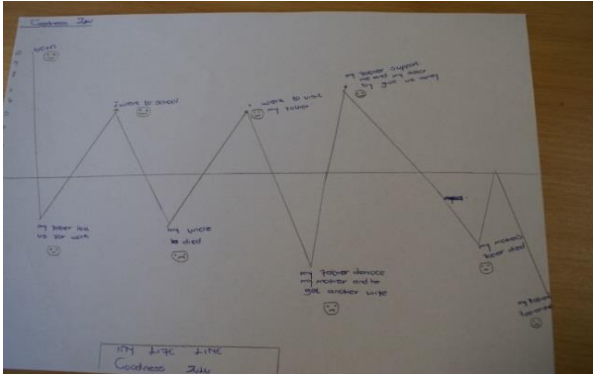 Goodness Zulu
born
I went to school
I went to visit
my father
my father support
me and my sister
by give us money
my father left
us for work
my uncle
died
my father divorce
my mother and he
got another wife
my mother's
father died
my father's
MY LIFE LINE
Goodness Zulu